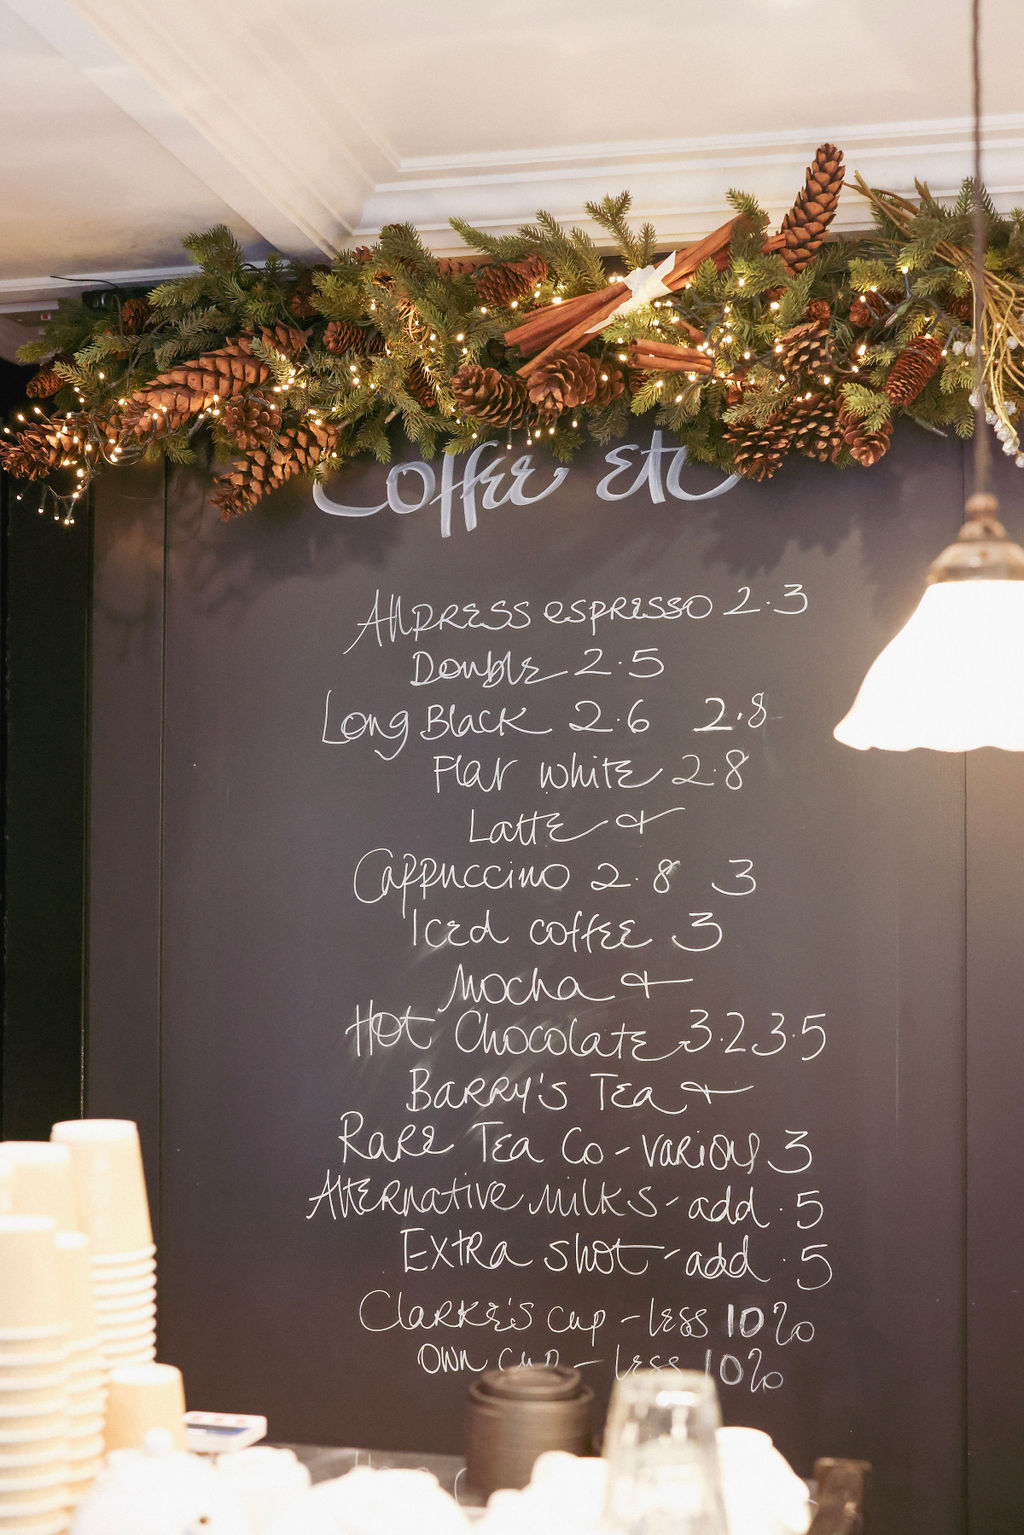 Coffee etc
Allpress espresso 2.3
Double 2.5
Long Black 2.6 2.8
Flat white 2.8
Latte &
Cappuccino 2.8 3
Iced coffee 3
Mocha &
Hot Chocolate 3.2 3.5
Barry's Tea &
Rare Tea Co - various 3
Alternative milks - add .5
Extra shot - add .5
Clarke's cup - less 10%
Own cup - less 10%